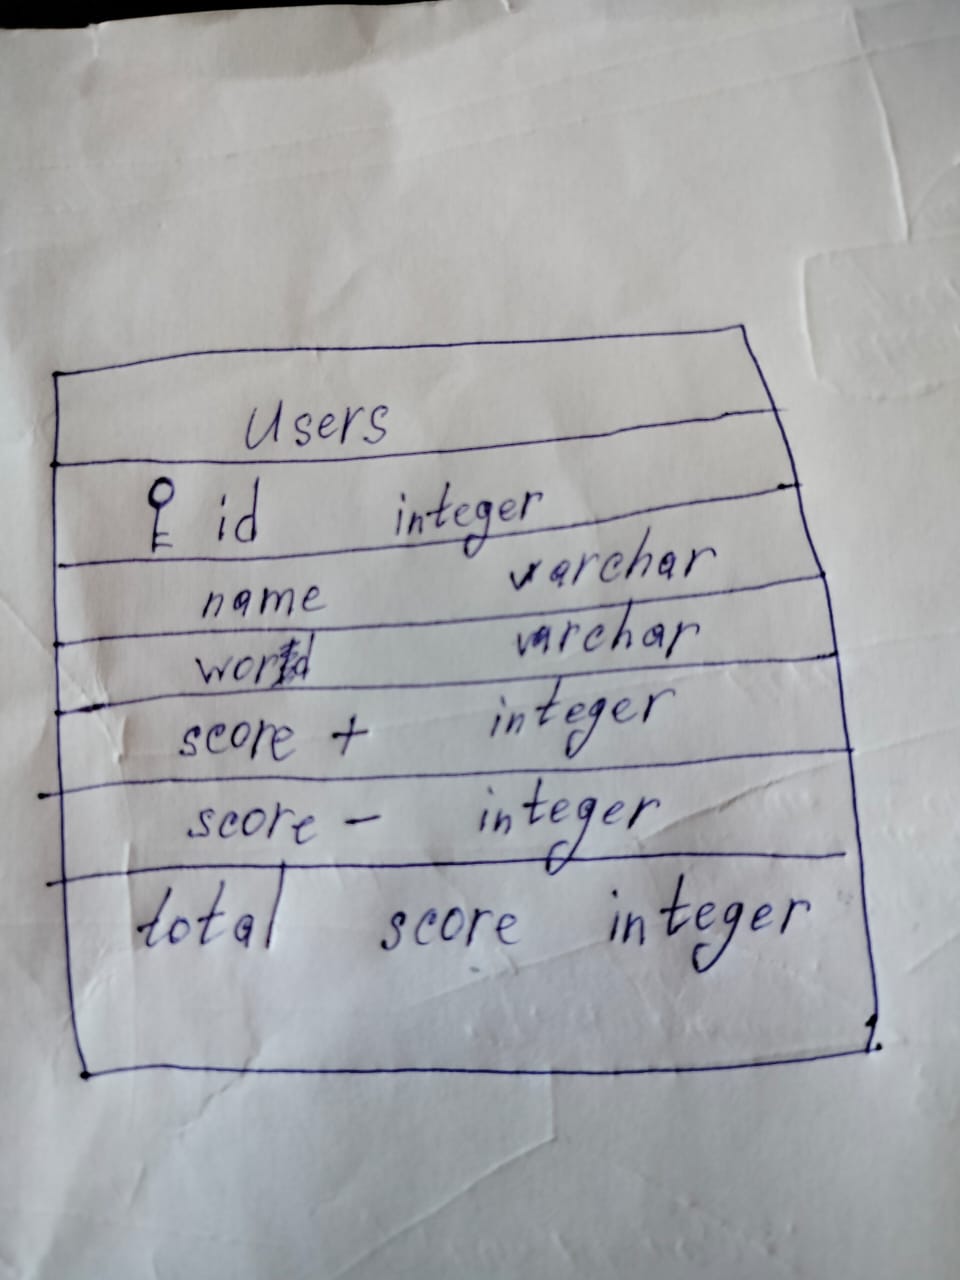 Users
id integer
name varchar
word varchar
score + integer
score - integer
total score integer